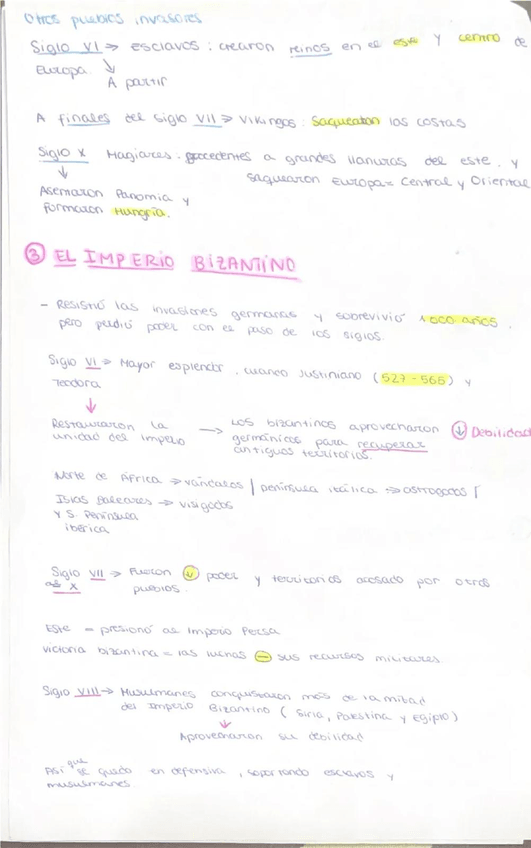 Otros pueblos invasores
Siglo VI → esclavos: crearon reinos en el este y centro de
Europa.
A partir
A finales del siglo VII → Vikingos: Saquearon las costas
Siglo X Magiares. procedentes a grandes llanuras del este. y
saquearon Europa = Central y Oriental
Asemaron Panomia y
Formaron Hungria.
③ EL IMPERIO BIZANTINO
- Resistió las invasiones germanas y sobrevivió 1000 años.
pero perdió poder con el paso de los siglos.
Siglo VI → Mayor esplendor. cuando Justiniano (527-565) y
Teodora
Restauraron la
unidad del Imperio → Los bizantinos aprovecharon ↓ Debilidad
germánicos para recuperar
antiguos territorios.
Norte de África → vándalos | península itálica → ostrogodos |
Islas Baleares → visigodos
y S. Península
ibérica
Siglo VII → Fueron ↓ poder y territorios acosado por otros
al X pueblos.
Este = presionó al Imperio Persa
victoria bizantina = las luchas - sus recursos militares.
Siglo VIII → Musulmanes conquistaron más de la mitad
del Imperio Bizantino (Siria, Palestina y Egipto)
Aprovecharon su debilidad
Así que se quedo en defensiva, soportando esclavos y
musulmanes